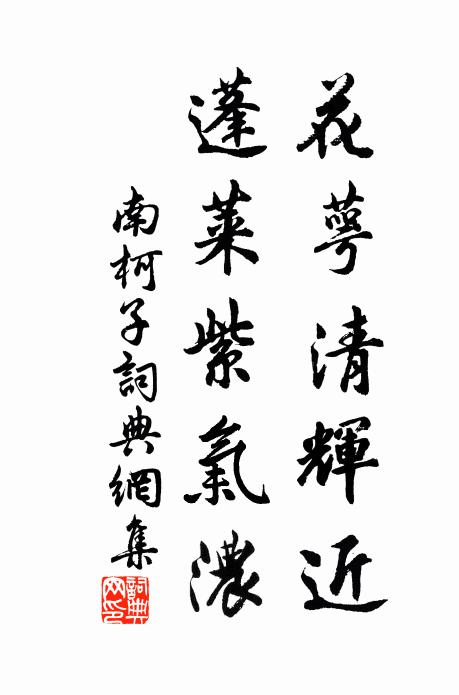 花萼清輝近
蓬萊紫氣濃
南柯子詞典網集
詞典網印